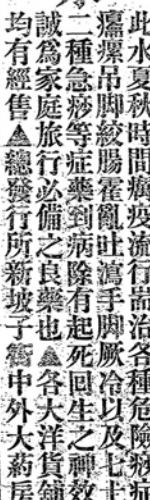 此水夏秋時間癘疫流行耑治各種危險痧症
癟癳吊脚絞腸霍亂吐瀉手脚厥冷以及七十
二種急痧等症藥到病除有起死回生之神效
誠爲家庭旅行必備之良藥也▲各大洋貨舖
均有經售▲總發行所新坡子 中外大葯房